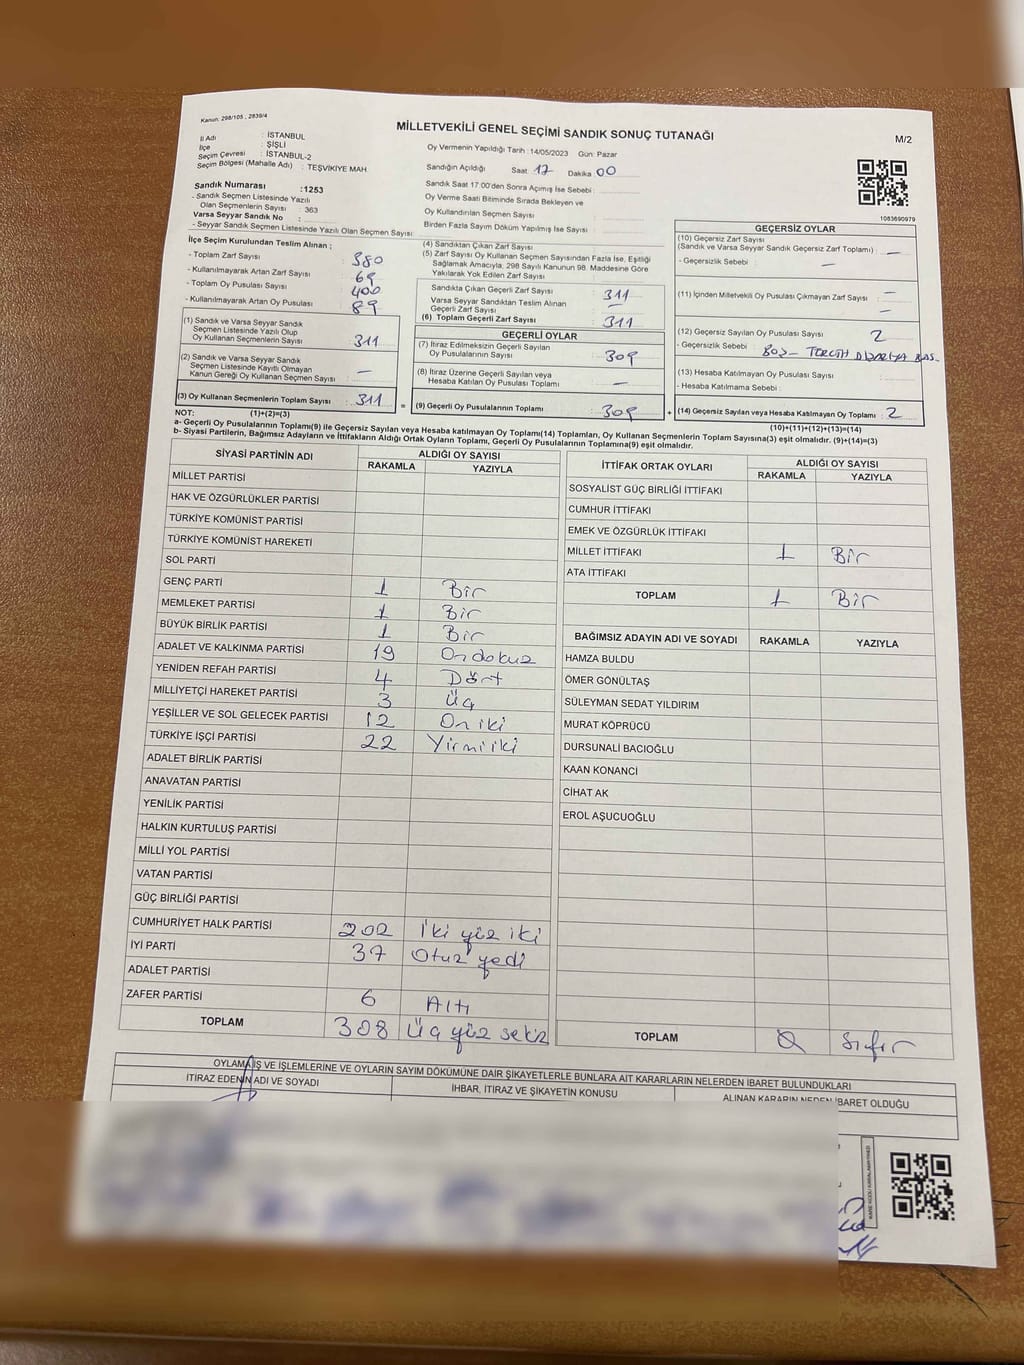 Kanun: 298/105 , 2839/4
MİLLETVEKİLİ GENEL SEÇİMİ SANDIK SONUÇ TUTANAĞI
M/2
İl Adı : İSTANBUL
İlçe : ŞİŞLİ
Seçim Çevresi : İSTANBUL-2
Seçim Bölgesi (Mahalle Adı) : TEŞVİKİYE MAH.
Oy Vermenin Yapıldığı Tarih : 14/05/2023 Gün: Pazar
Sandığın Açıldığı Saat 17 Dakika 00
Sandık Saat 17:00'den Sonra Açımış İse Sebebi :
Oy Verme Saati Bitiminde Sırada Bekleyen ve
Oy Kullandırılan Seçmen Sayısı :
Birden Fazla Sayım Döküm Yapılmış İse Sayısı :
Sandık Numarası : 1253
- Sandık Seçmen Listesinde Yazılı
Olan Seçmenlerin Sayısı : 363
Varsa Seyyar Sandık No :
- Seyyar Sandık Seçmen Listesinde Yazılı Olan Seçmen Sayısı:
1083690979
İlçe Seçim Kurulundan Teslim Alınan ;
- Toplam Zarf Sayısı : 380
- Kullanılmayarak Artan Zarf Sayısı : 69
- Toplam Oy Pusulası Sayısı : 400
- Kullanılmayarak Artan Oy Pusulası : 89
(1) Sandık ve Varsa Seyyar Sandık
Seçmen Listesinde Yazılı Olup
Oy Kullanan Seçmenlerin Sayısı : 311
(2) Sandık ve Varsa Seyyar Sandık
Seçmen Listesinde Kayıtlı Olmayan
Kanun Gereği Oy Kullanan Seçmen Sayısı : —
(3) Oy Kullanan Seçmenlerin Toplam Sayısı : 311
(4) Sandıktan Çıkan Zarf Sayısı :
(5) Zarf Sayısı Oy Kullanan Seçmen Sayısından Fazla İse, Eşitliği
Sağlamak Amacıyla, 298 Sayılı Kanunun 98. Maddesine Göre
Yakılarak Yok Edilen Zarf Sayısı :
Sandıkta Çıkan Geçerli Zarf Sayısı : 311
Varsa Seyyar Sandıktan Teslim Alınan
Geçerli Zarf Sayısı : —
(6) Toplam Geçerli Zarf Sayısı : 311
GEÇERLİ OYLAR
(7) İtiraz Edilmeksizin Geçerli Sayılan
Oy Pusulalarının Sayısı : 309
(8) İtiraz Üzerine Geçerli Sayılan veya
Hesaba Katılan Oy Pusulası Toplamı : —
= (9) Geçerli Oy Pusulalarının Toplamı : 309
GEÇERSİZ OYLAR
(10) Geçersiz Zarf Sayısı
(Sandık ve Varsa Seyyar Sandık Geçersiz Zarf Toplamı) : —
- Geçersizlik Sebebi : —
(11) İçinden Milletvekili Oy Pusulası Çıkmayan Zarf Sayısı : —
—
(12) Geçersiz Sayılan Oy Pusulası Sayısı : 2
- Geçersizlik Sebebi : BOŞ -
(13) Hesaba Katılmayan Oy Pusulası Sayısı :
- Hesaba Katılmama Sebebi :
+ (14) Geçersiz Sayılan veya Hesaba Katılmayan Oy Toplamı : 2
NOT: (1)+(2)=(3)
(10)+(11)+(12)+(13)=(14)
a- Geçerli Oy Pusulalarının Toplamı(9) ile Geçersiz Sayılan veya Hesaba katılmayan Oy Toplamı(14) Toplamları, Oy Kullanan Seçmenlerin Toplam Sayısına(3) eşit olmalıdır. (9)+(14)=(3)
b- Siyasi Partilerin, Bağımsız Adayların ve İttifakların Aldığı Ortak Oyların Toplamı, Geçerli Oy Pusulalarının Toplamına(9) eşit olmalıdır.
SİYASİ PARTİNİN ADI
ALDIĞI OY SAYISI
RAKAMLA YAZIYLA
MİLLET PARTİSİ
HAK VE ÖZGÜRLÜKLER PARTİSİ
TÜRKİYE KOMÜNİST PARTİSİ
TÜRKİYE KOMÜNİST HAREKETİ
SOL PARTİ
GENÇ PARTİ 1 Bir
MEMLEKET PARTİSİ 1 Bir
BÜYÜK BİRLİK PARTİSİ 1 Bir
ADALET VE KALKINMA PARTİSİ 19 On dokuz
YENİDEN REFAH PARTİSİ 4 Dört
MİLLİYETÇİ HAREKET PARTİSİ 3 Üç
YEŞİLLER VE SOL GELECEK PARTİSİ 12 On iki
TÜRKİYE İŞÇİ PARTİSİ 22 Yirmi iki
ADALET BİRLİK PARTİSİ
ANAVATAN PARTİSİ
YENİLİK PARTİSİ
HALKIN KURTULUŞ PARTİSİ
MİLLİ YOL PARTİSİ
VATAN PARTİSİ
GÜÇ BİRLİĞİ PARTİSİ
CUMHURİYET HALK PARTİSİ 202 İki yüz iki
İYİ PARTİ 37 Otuz yedi
ADALET PARTİSİ
ZAFER PARTİSİ 6 Altı
TOPLAM 308 Üç yüz sekiz
İTTİFAK ORTAK OYLARI
ALDIĞI OY SAYISI
RAKAMLA YAZIYLA
SOSYALİST GÜÇ BİRLİĞİ İTTİFAKI
CUMHUR İTTİFAKI
EMEK VE ÖZGÜRLÜK İTTİFAKI
MİLLET İTTİFAKI 1 Bir
ATA İTTİFAKI
TOPLAM 1 Bir
BAĞIMSIZ ADAYIN ADI VE SOYADI RAKAMLA YAZIYLA
HAMZA BULDU
ÖMER GÖNÜLTAŞ
SÜLEYMAN SEDAT YILDIRIM
MURAT KÖPRÜCÜ
DURSUNALİ BACIOĞLU
KAAN KONANCİ
CİHAT AK
EROL AŞUCUOĞLU
TOPLAM 0 Sıfır
OYLAMA İŞ VE İŞLEMLERİNE VE OYLARIN SAYIM DÖKÜMÜNE DAİR ŞİKAYETLERLE BUNLARA AİT KARARLARIN NELERDEN İBARET BULUNDUKLARI
İTİRAZ EDENİN ADI VE SOYADI
İHBAR, İTİRAZ VE ŞİKAYETİN KONUSU
ALINAN KARARIN NEDEN İBARET OLDUĞU